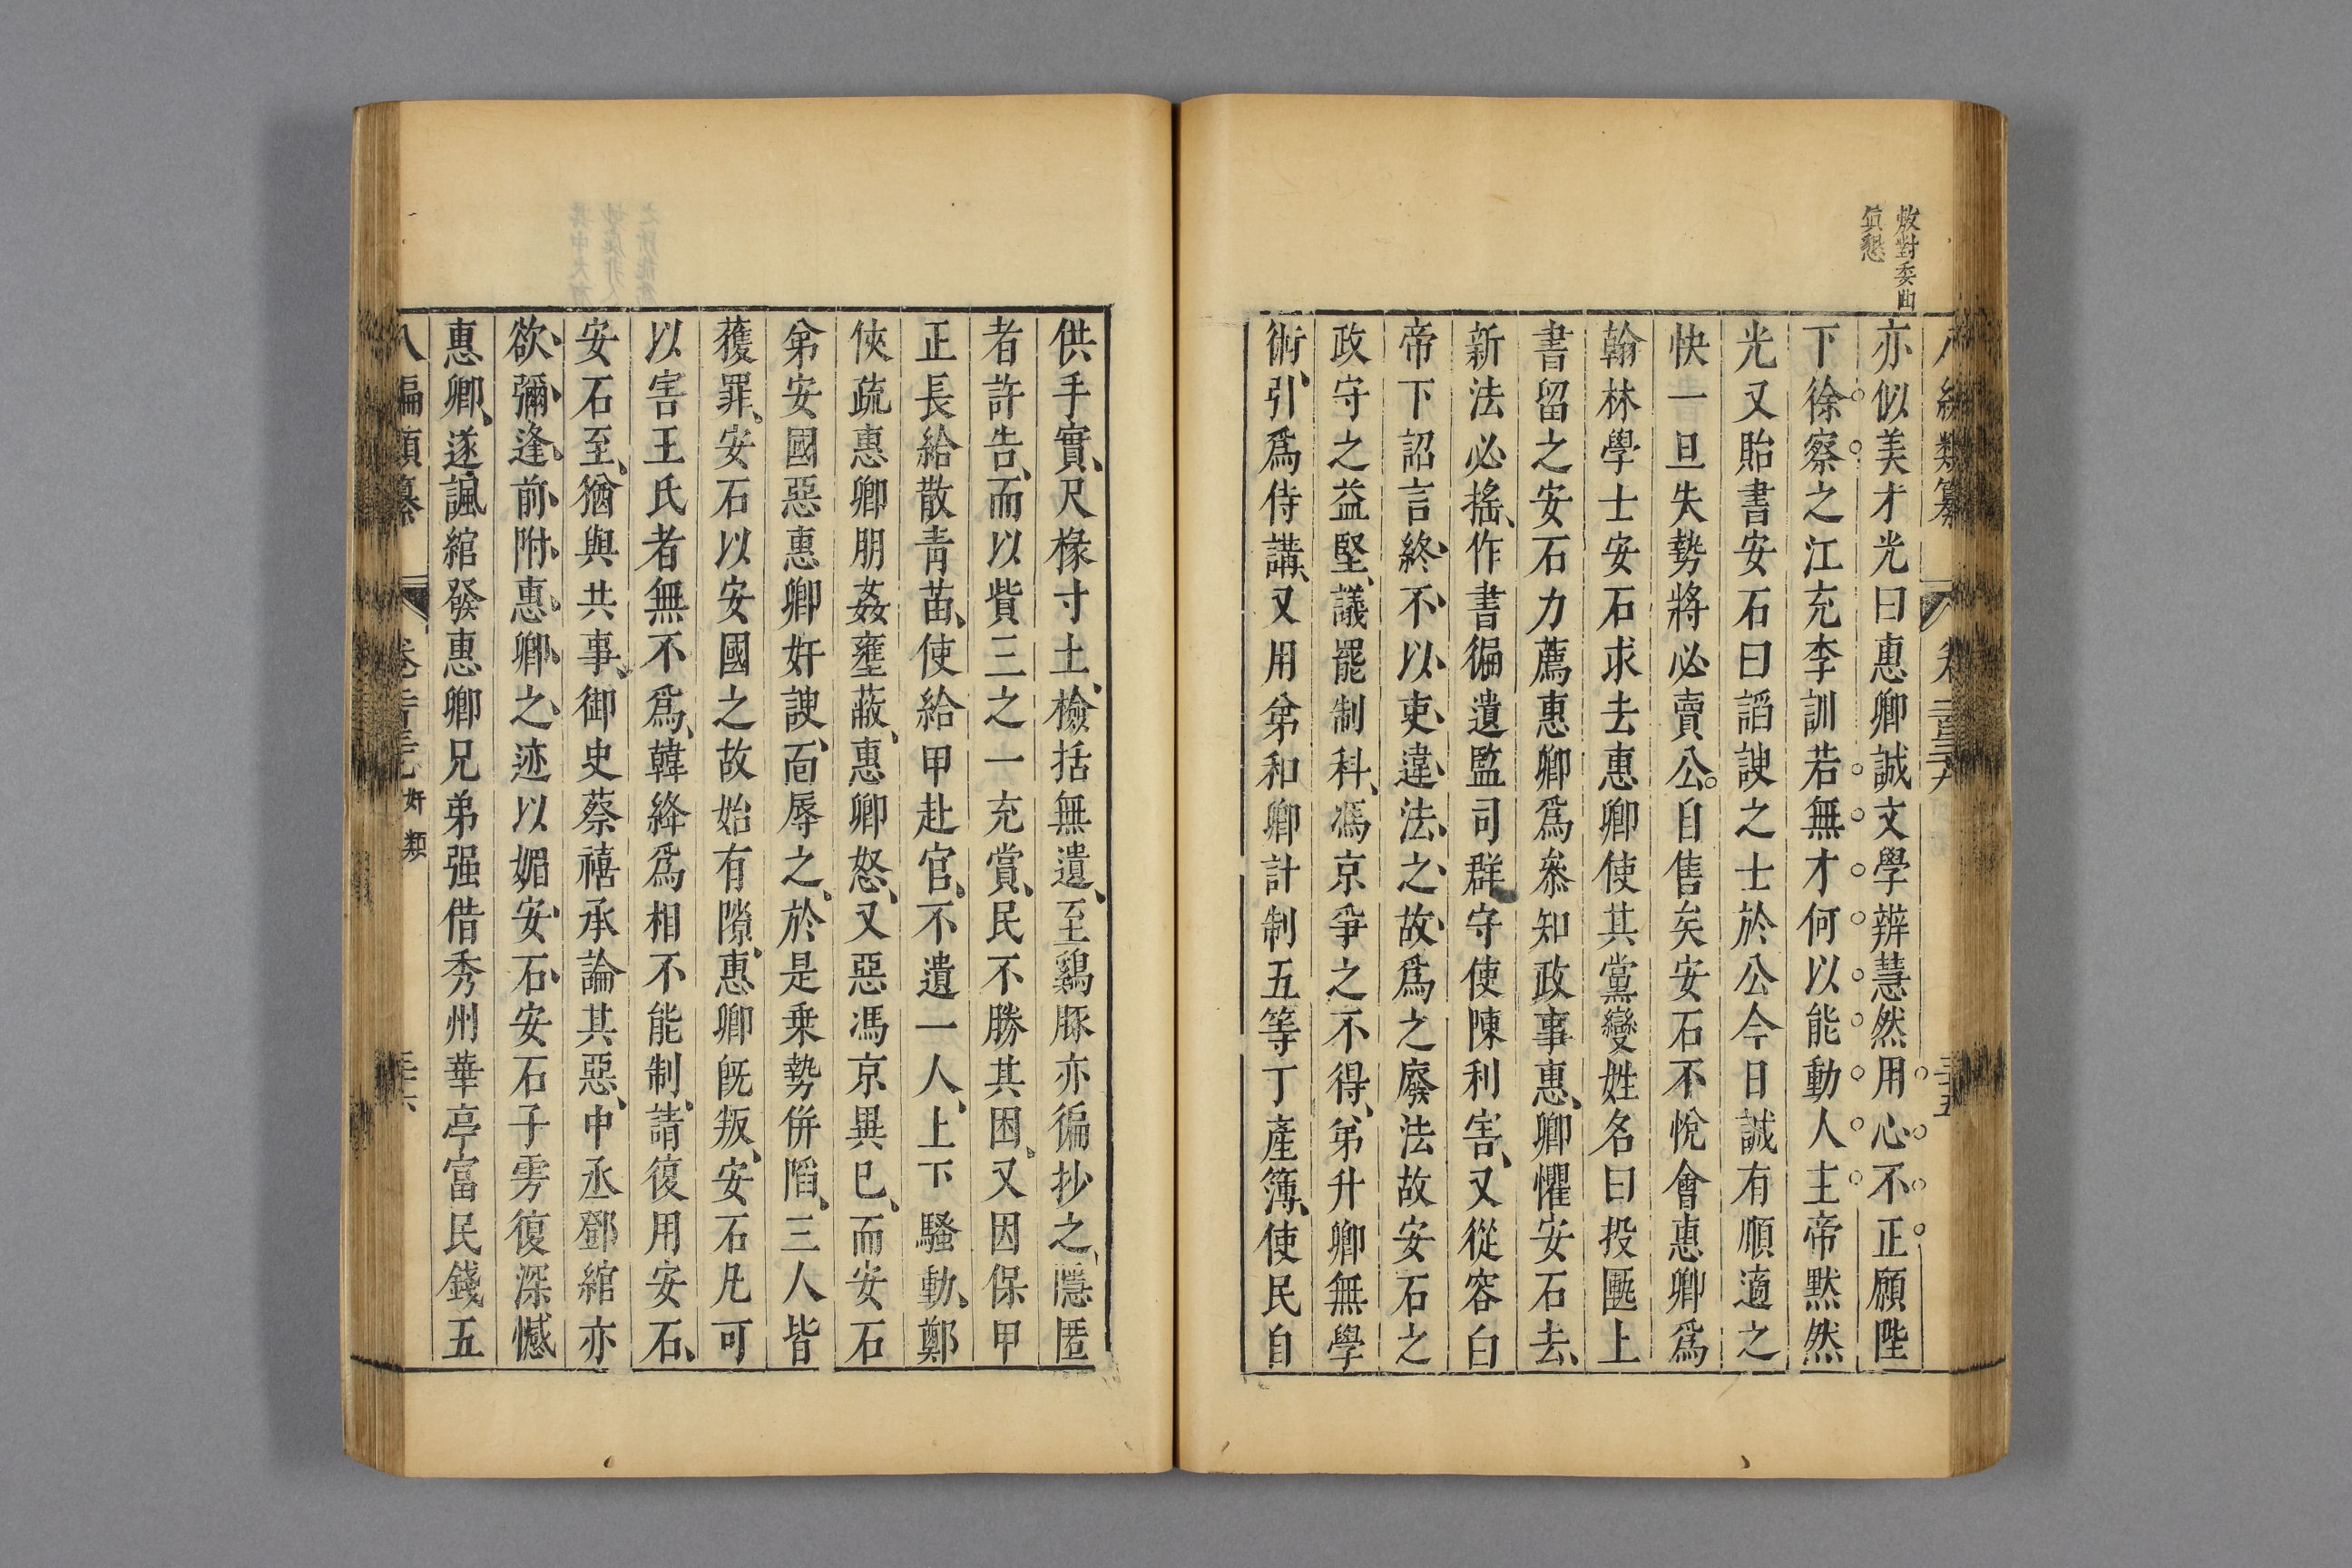 敷對委曲
眞懇
亦似美才光曰惠卿誠文學辨慧然用心不正願陛
下徐察之江充李訓若無才何以能動人主帝黙然
光又貽書安石曰謟諛之士於公今日誠有順適之
快一旦失勢將必賣公自售矣安石不悅會惠卿爲
翰林學士安石求去惠卿使其黨變姓名曰投匭上
書留之安石力薦惠卿爲叅知政事惠卿懼安石去
新法必搖作書徧遺監司群守使陳利害又從容白
帝下詔言終不以吏違法之故爲之廢法故安石之
政守之益堅議罷制科馮京爭之不得弟升卿無學
術引爲侍講又用弟和卿計制五等丁產簿使民自
供手實尺椽寸土檢括無遺至鷄豚亦徧抄之隱匿
者許告而以貲三之一充賞民不勝其困又因保甲
正長給散青苗使給甲赴官不遺一人上下騷動鄭
俠疏惠卿朋姦壅蔽惠卿怒又惡馮京異已而安石
弟安國惡惠卿奸諛靣辱之於是乗勢併陷三人皆
獲罪安石以安國之故始有隙惠卿旣叛安石凡可
以害王氏者無不爲韓絳爲相不能制請復用安石
安石至猶與共事御史蔡禧承論其惡中丞鄧綰亦
欲彌逢前附惠卿之迹以媚安石安石子雱復深憾
惠卿遂諷綰發惠卿兄弟强借秀州華亭富民錢五